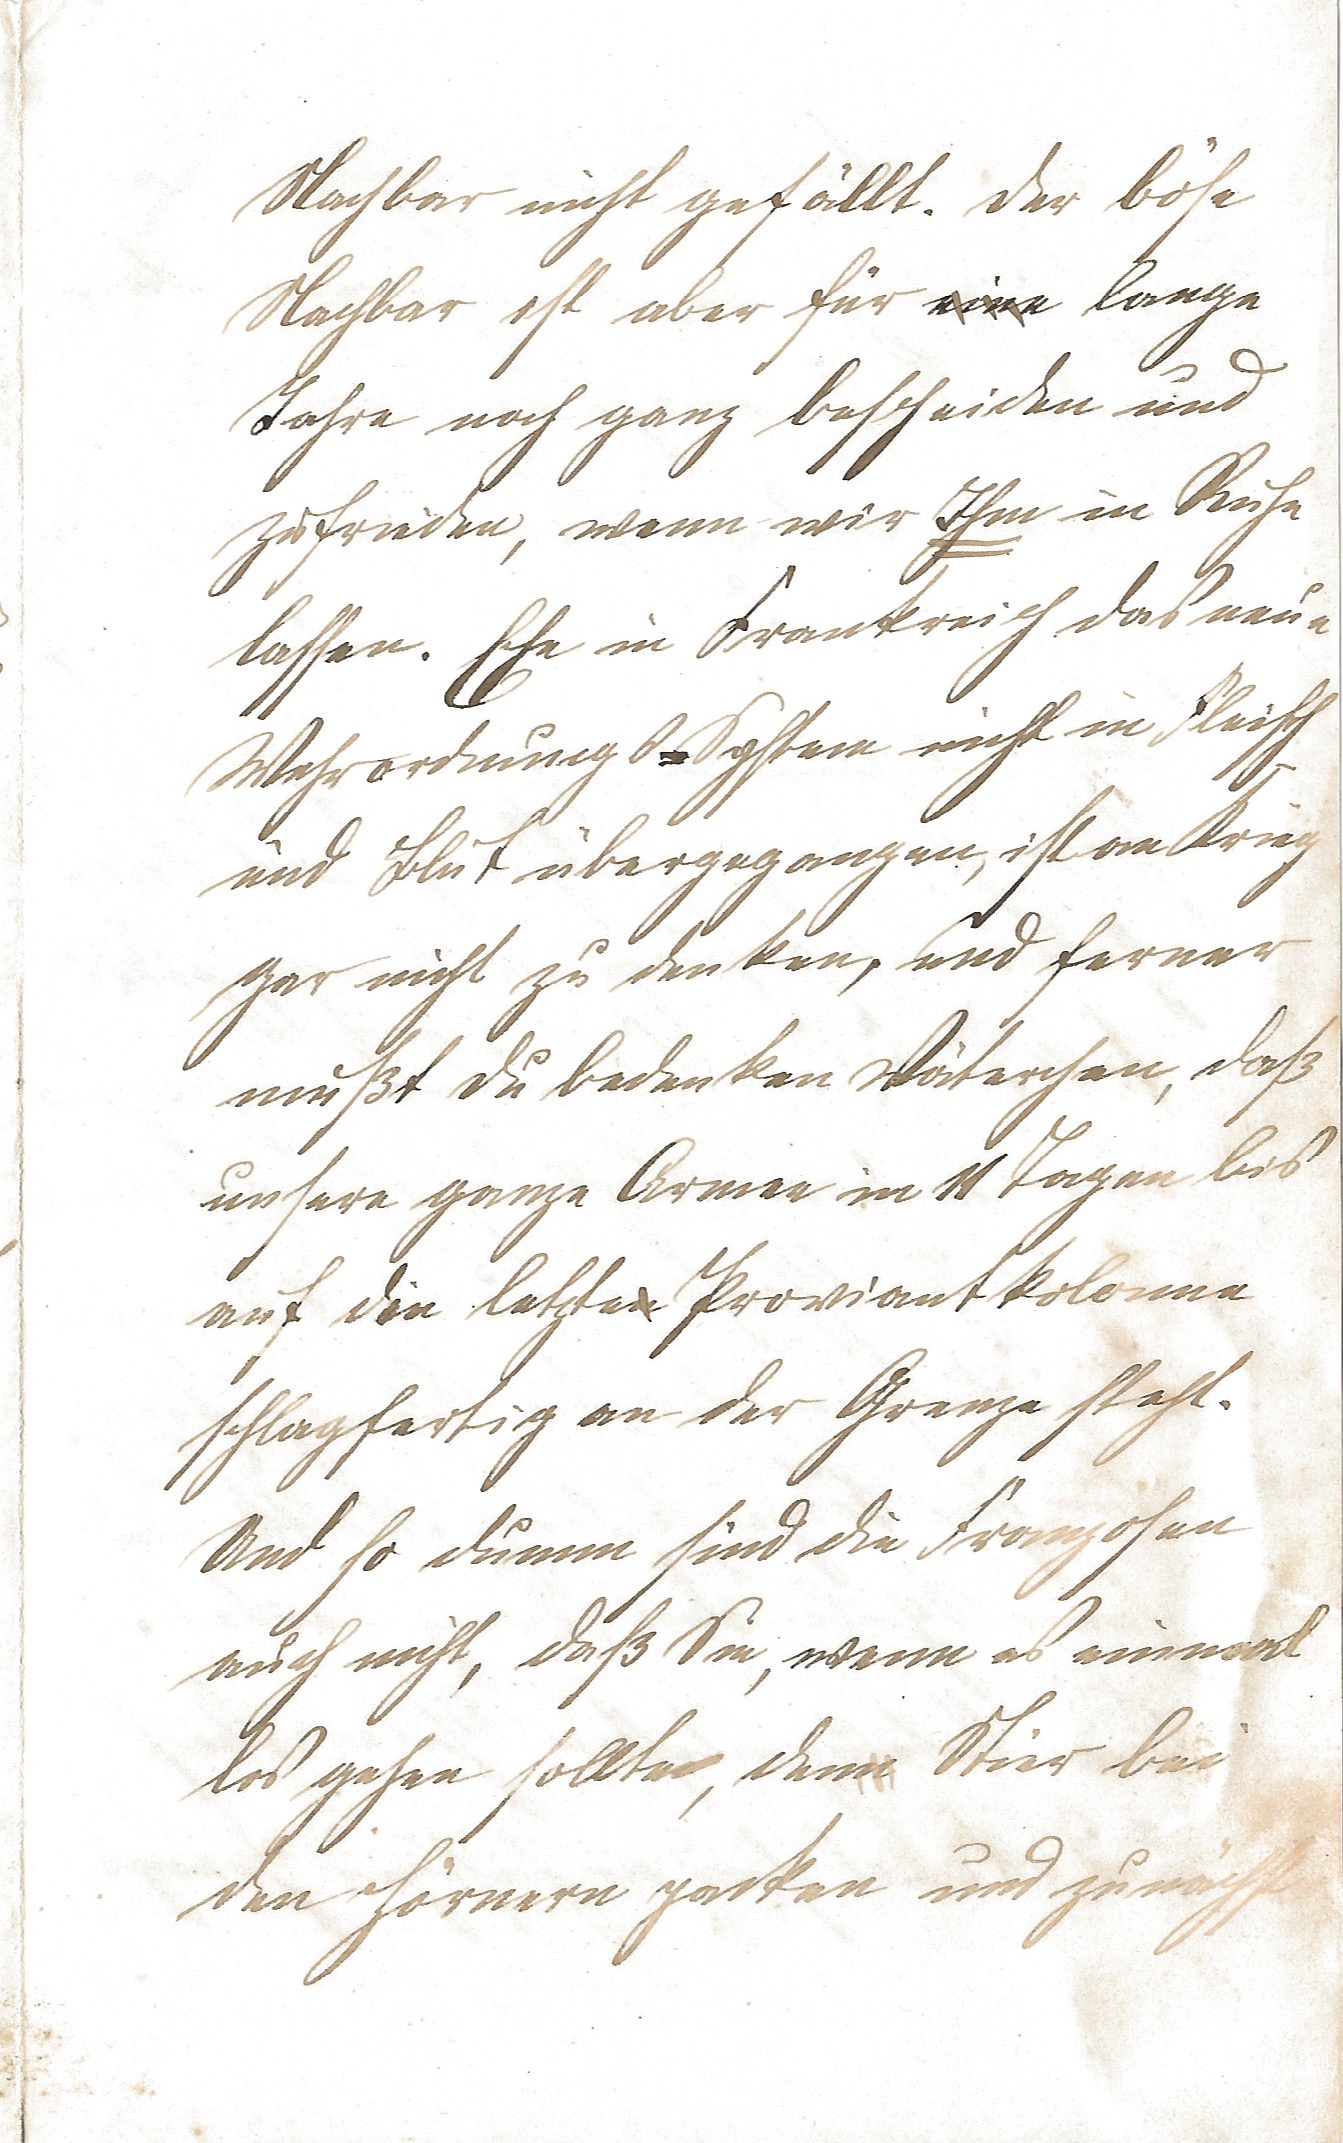 Nachbar nicht gefällt. Der böse
Nachbar ist aber für eine lange
Jahre noch ganz bescheiden und
zufrieden, wenn wir Ihm in Ruhe
lassen. Ehe in Frankreich das neue
Wehrordnungs-System nicht in Fleisch
und Blut übergegangen, ist an Krieg
gar nicht zu denken, und ferner
mußt Du bedenken Väterchen, daß
unsere ganze Armee in 11 Tagen bis
auf die letzte Proviantkolonne
schlagfertig an der Grenze steht.
Und so dumm sind die Franzosen
auch nicht, daß Sie, wenn es einmal
los gehen sollte, dem Stier bei
den Hörnern packen und zunächst